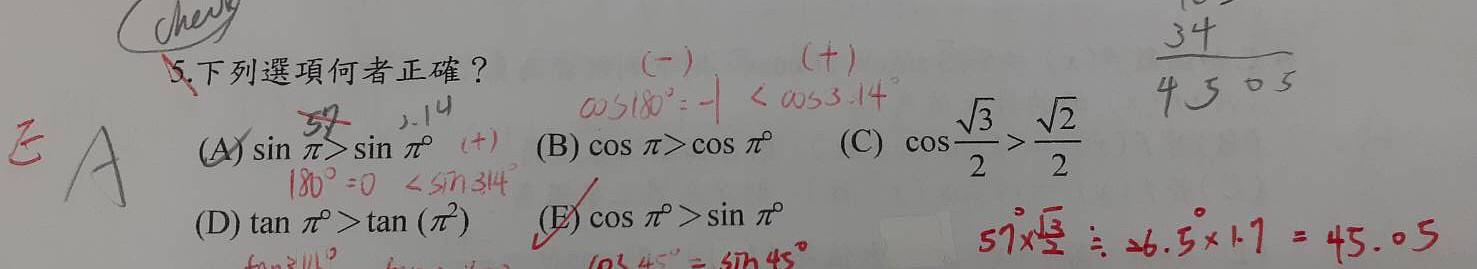 Check
34
4505
5.下列選項何者正確？
(-) (+)
cos180°=-1 < cos3.14°
57 3.14
E A
(A) sin π>sin π° (+) (B) cos π>cos π° (C) cos √3/2 > √2/2
180°=0 <sin3.14°
(D) tan π°>tan (π²) (E) cos π°>sin π°
57°×√3/2 ≒ 26.5°×1.7 = 45.05
cos 45° = sin 45°